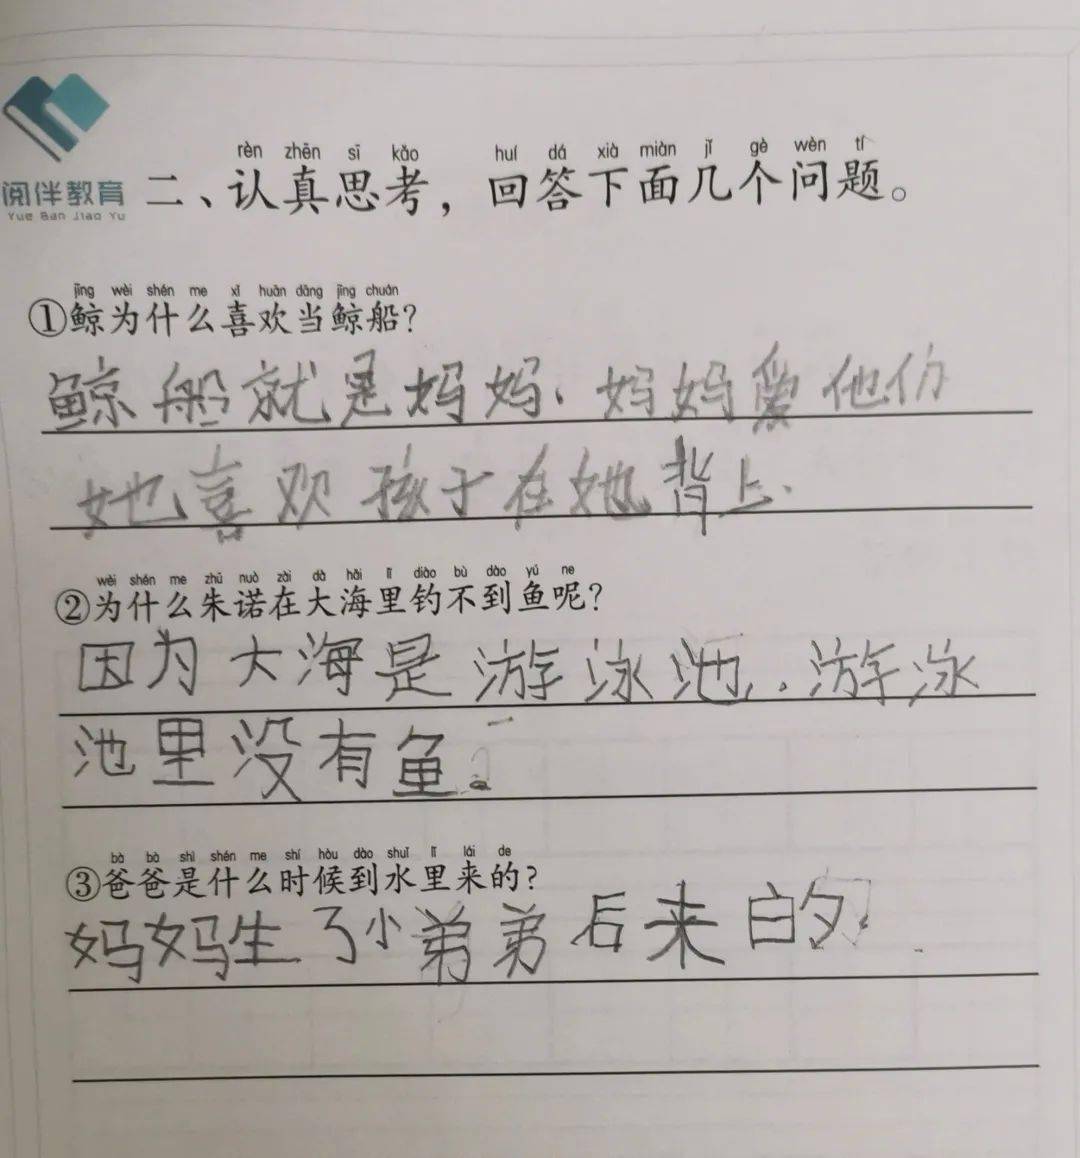 rèn zhēn sī kǎo huí dá xià miàn jǐ gè wèn tí
二、认真思考，回答下面几个问题。
阅伴教育
Yue Ban Jiao Yu
jīng wèi shén me xǐ huān dāng jīng chuán
①鲸为什么喜欢当鲸船？
鲸船就是妈妈，妈妈爱他们
她喜欢孩子在她背上.
wèi shén me zhū nuò zài dà hǎi lǐ diào bù dào yú ne
②为什么朱诺在大海里钓不到鱼呢？
因为大海是游泳池，游泳
池里没有鱼。
bà bà shì shén me shí hòu dào shuǐ lǐ lái de
③爸爸是什么时候到水里来的？
妈妈生了小弟弟后来的.